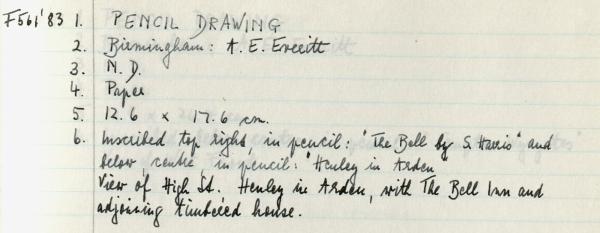 F561'83 1. PENCIL DRAWING
2. Birmingham: A. E. Everitt
3. N.D.
4. Paper
5. 12.6 x 17.6 cm.
6. Inscribed top right, in pencil: "The Bell by S. Harris" and
below centre in pencil: "Henley in Arden
View of High St. Henley in Arden, with The Bell Inn and
adjoining timbered house.